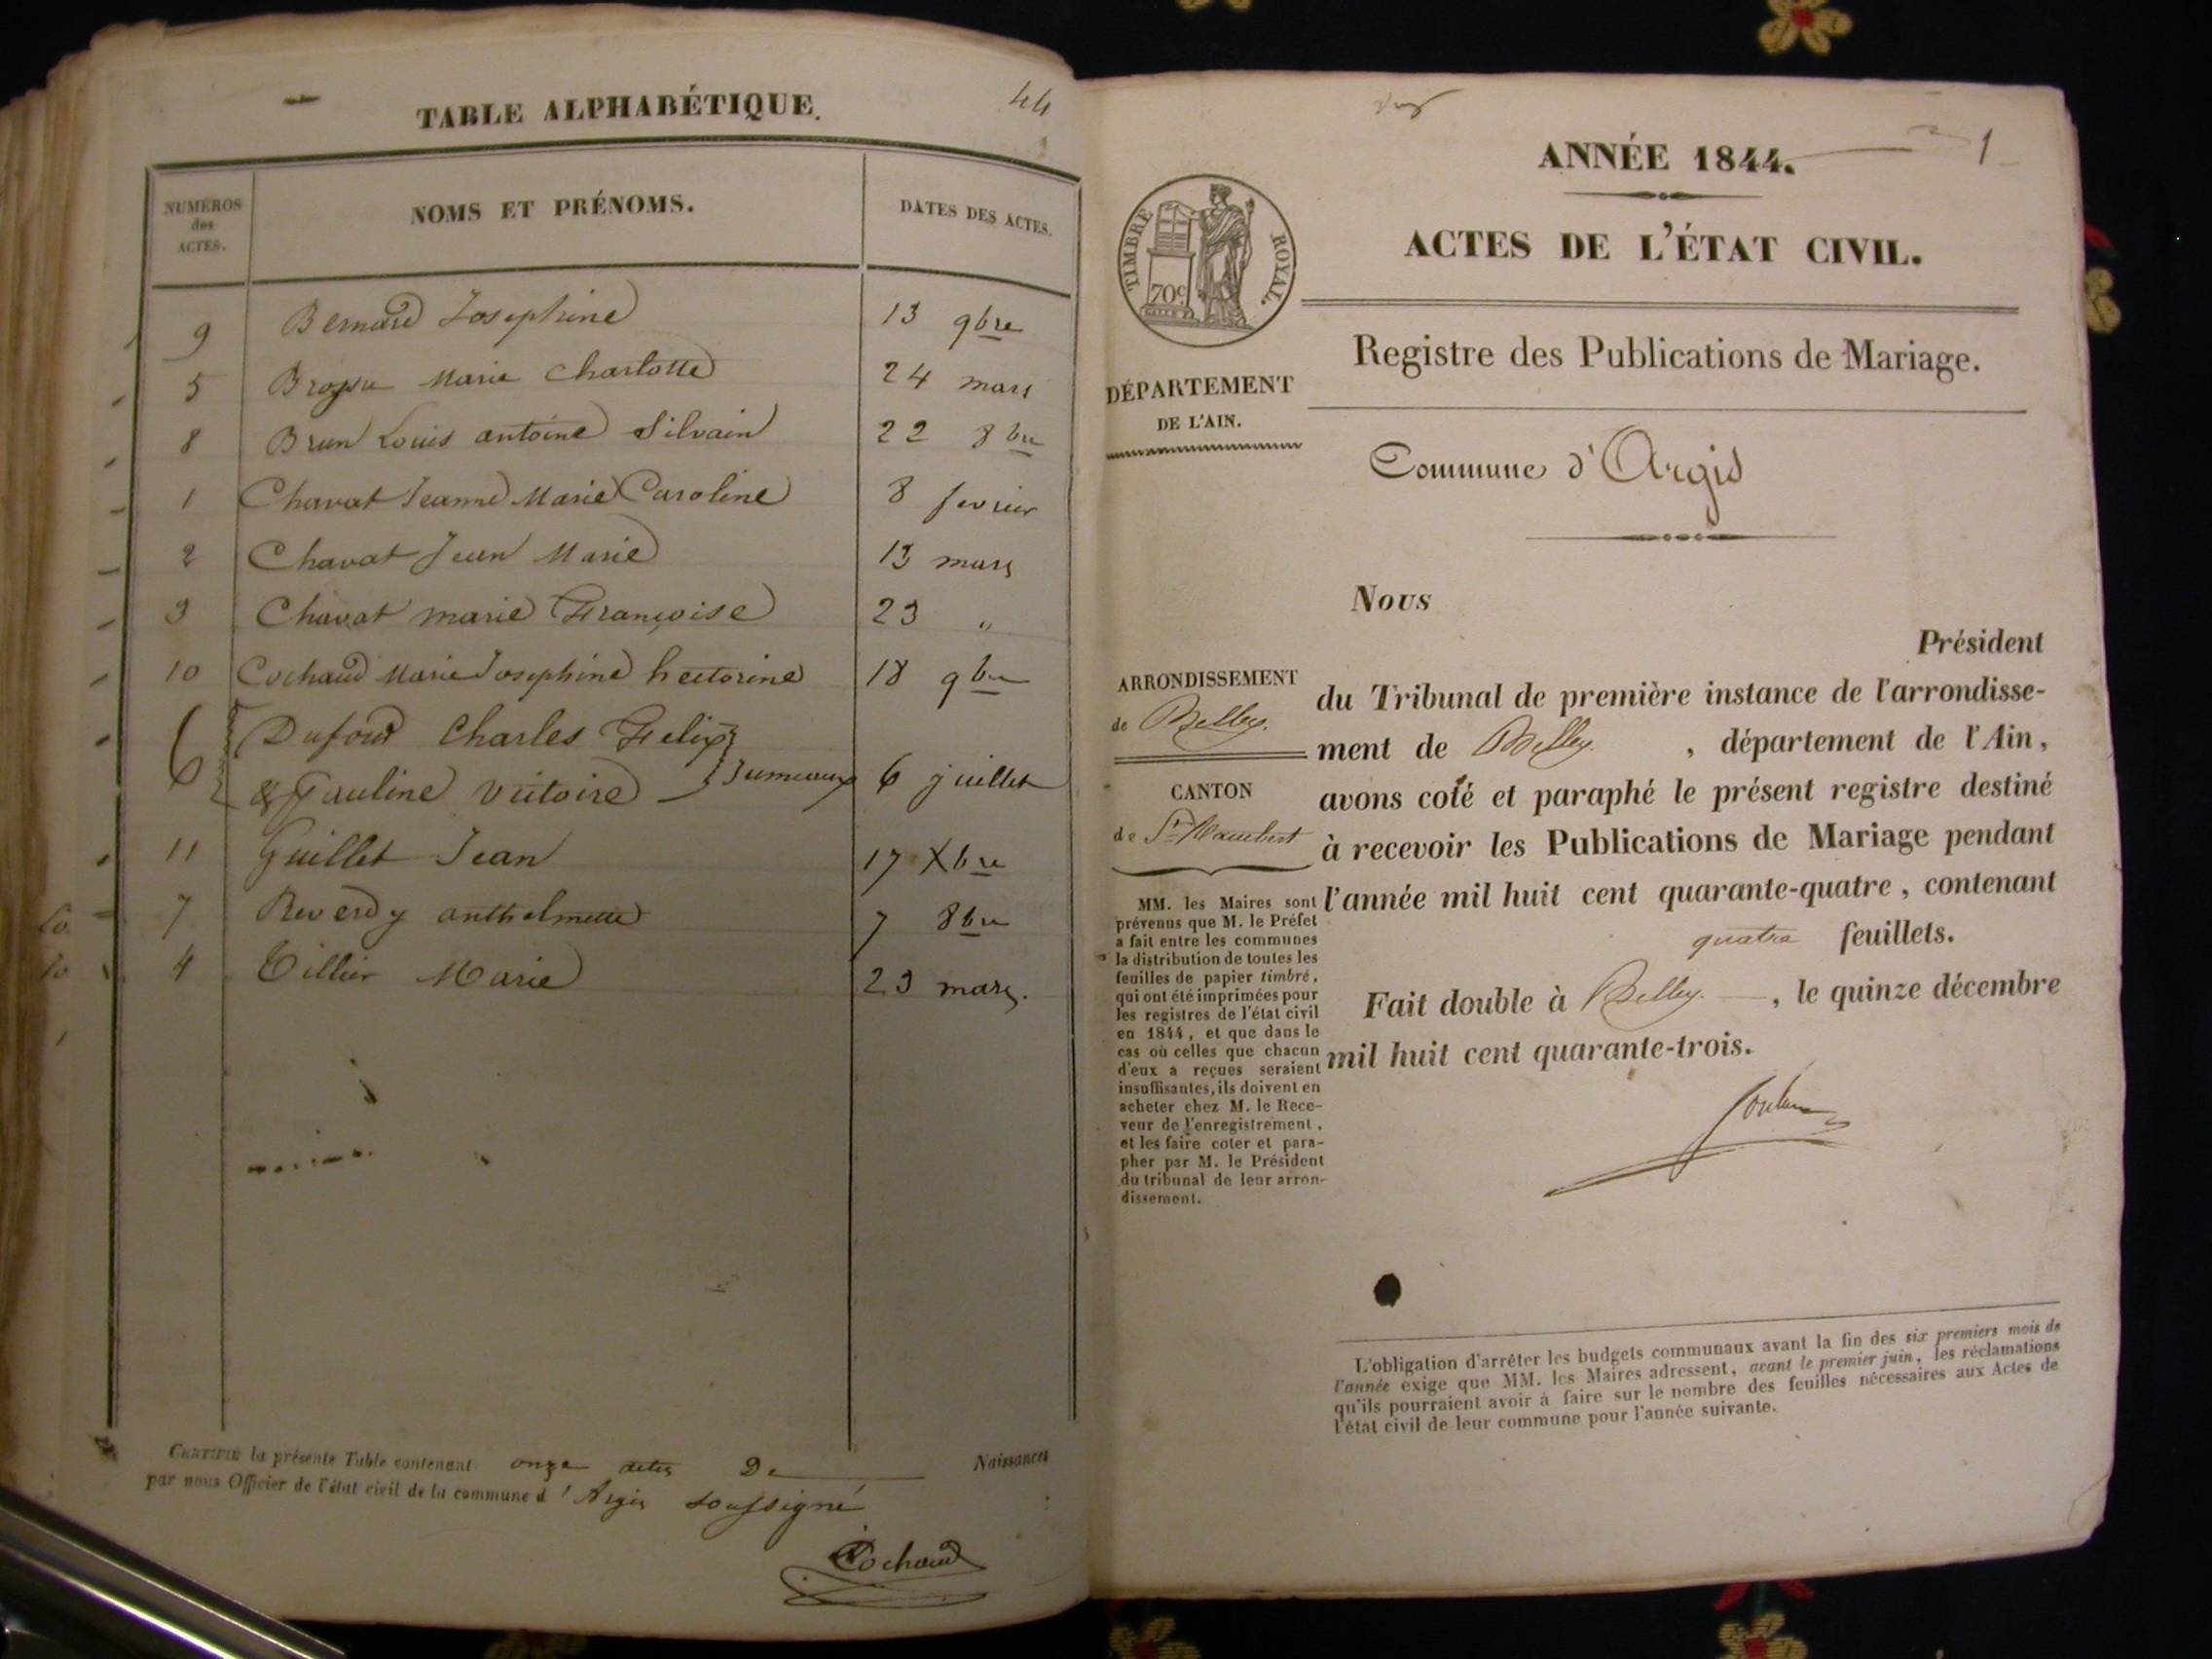 TABLE ALPHABÉTIQUE.
44
NUMÉROS
des
ACTES.
NOMS ET PRÉNOMS.
DATES DES ACTES.
9 Bernard Josephine 13 9bre
5 Marie Charlotte 24 mars
8 Brun Louis antoine Silvain 22 8bre
1 Chavat Jeanne Marie Caroline 8 fevrier
2 Chavat Jean Marie 13 mars
3 Chavat marie Françoise 23 "
10 Cochaud Marie Josephine hectorine 18 9bre
6 Dufour Charles Felix
& Pauline Victoire Jumeaux 6 juillet
11 Guillet Jean 17 Xbre
7 Reverdy anthelmette 7 8bre
4 Tillier Marie 23 mars.
CERTIFIÉ la présente Table contenant onze actes De Naissances
par nous Officier de l'état civil de la commune d'Argis soussigné
Cochaud
1
ANNÉE 1844.
TIMBRE ROYAL.
70c
ACTES DE L'ÉTAT CIVIL.
Registre des Publications de Mariage.
DÉPARTEMENT
DE L'AIN.
Commune d'Argis
Nous
Président
ARRONDISSEMENT
de Belley.
CANTON
de St Rambert
du Tribunal de première instance de l'arrondisse-
ment de Belley. , département de l'Ain,
avons coté et paraphé le présent registre destiné
à recevoir les Publications de Mariage pendant
l'année mil huit cent quarante-quatre, contenant
quatre feuillets.
Fait double à Belley. , le quinze décembre
mil huit cent quarante-trois.
MM. les Maires sont
prévenus que M. le Préfet
a fait entre les communes
la distribution de toutes les
feuilles de papier timbré,
qui ont été imprimées pour
les registres de l'état civil
en 1844, et que dans le
cas où celles que chacun
d'eux a reçues seraient
insuffisantes, ils doivent en
acheter chez M. le Rece-
veur de l'enregistrement,
et les faire coter et para-
pher par M. le Président
du tribunal de leur arron-
dissement.
L'obligation d'arrêter les budgets communaux avant la fin des six premiers mois de
l'année exige que MM. les Maires adressent, avant le premier juin, les réclamations
qu'ils pourraient avoir à faire sur le nombre des feuilles nécessaires aux Actes de
l'état civil de leur commune pour l'année suivante.